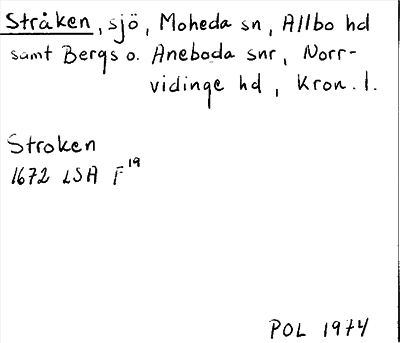 Stråken, sjö, Moheda sn, Allbo hd
samt Bergs o. Aneboda snr, Norr-
vidinge hd, Kron. l.
Stroken
1672 LSA F19
POL 1974